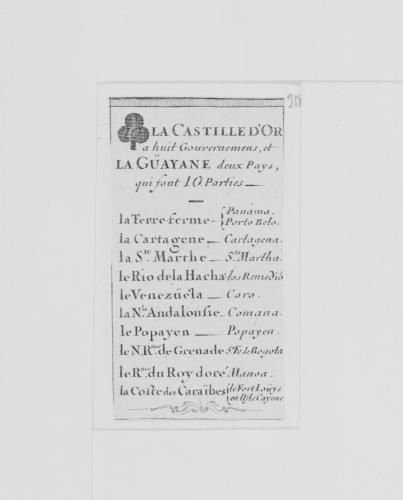 10 LA CASTILLE D'OR
a huit Gouvernemens, et
LA GÜAYANE deux Pays,
qui font 10 Parties
la Terre-ferme { Panama. Porto Belo.
la Cartagene Cartagena.
la Ste. Marthe Sta. Martha.
le Rio de la Hacha los Remedio
le Venezüela Coro.
la Nle. Andalousie Comana.
le Popayen Popayen.
le N. Rme. de Grenade Sta. Fe de Bogota
le Rme. du Roy doré Manoa.
la Coste des Caraïbes { le Fort Loüys en l'Isle Cayene